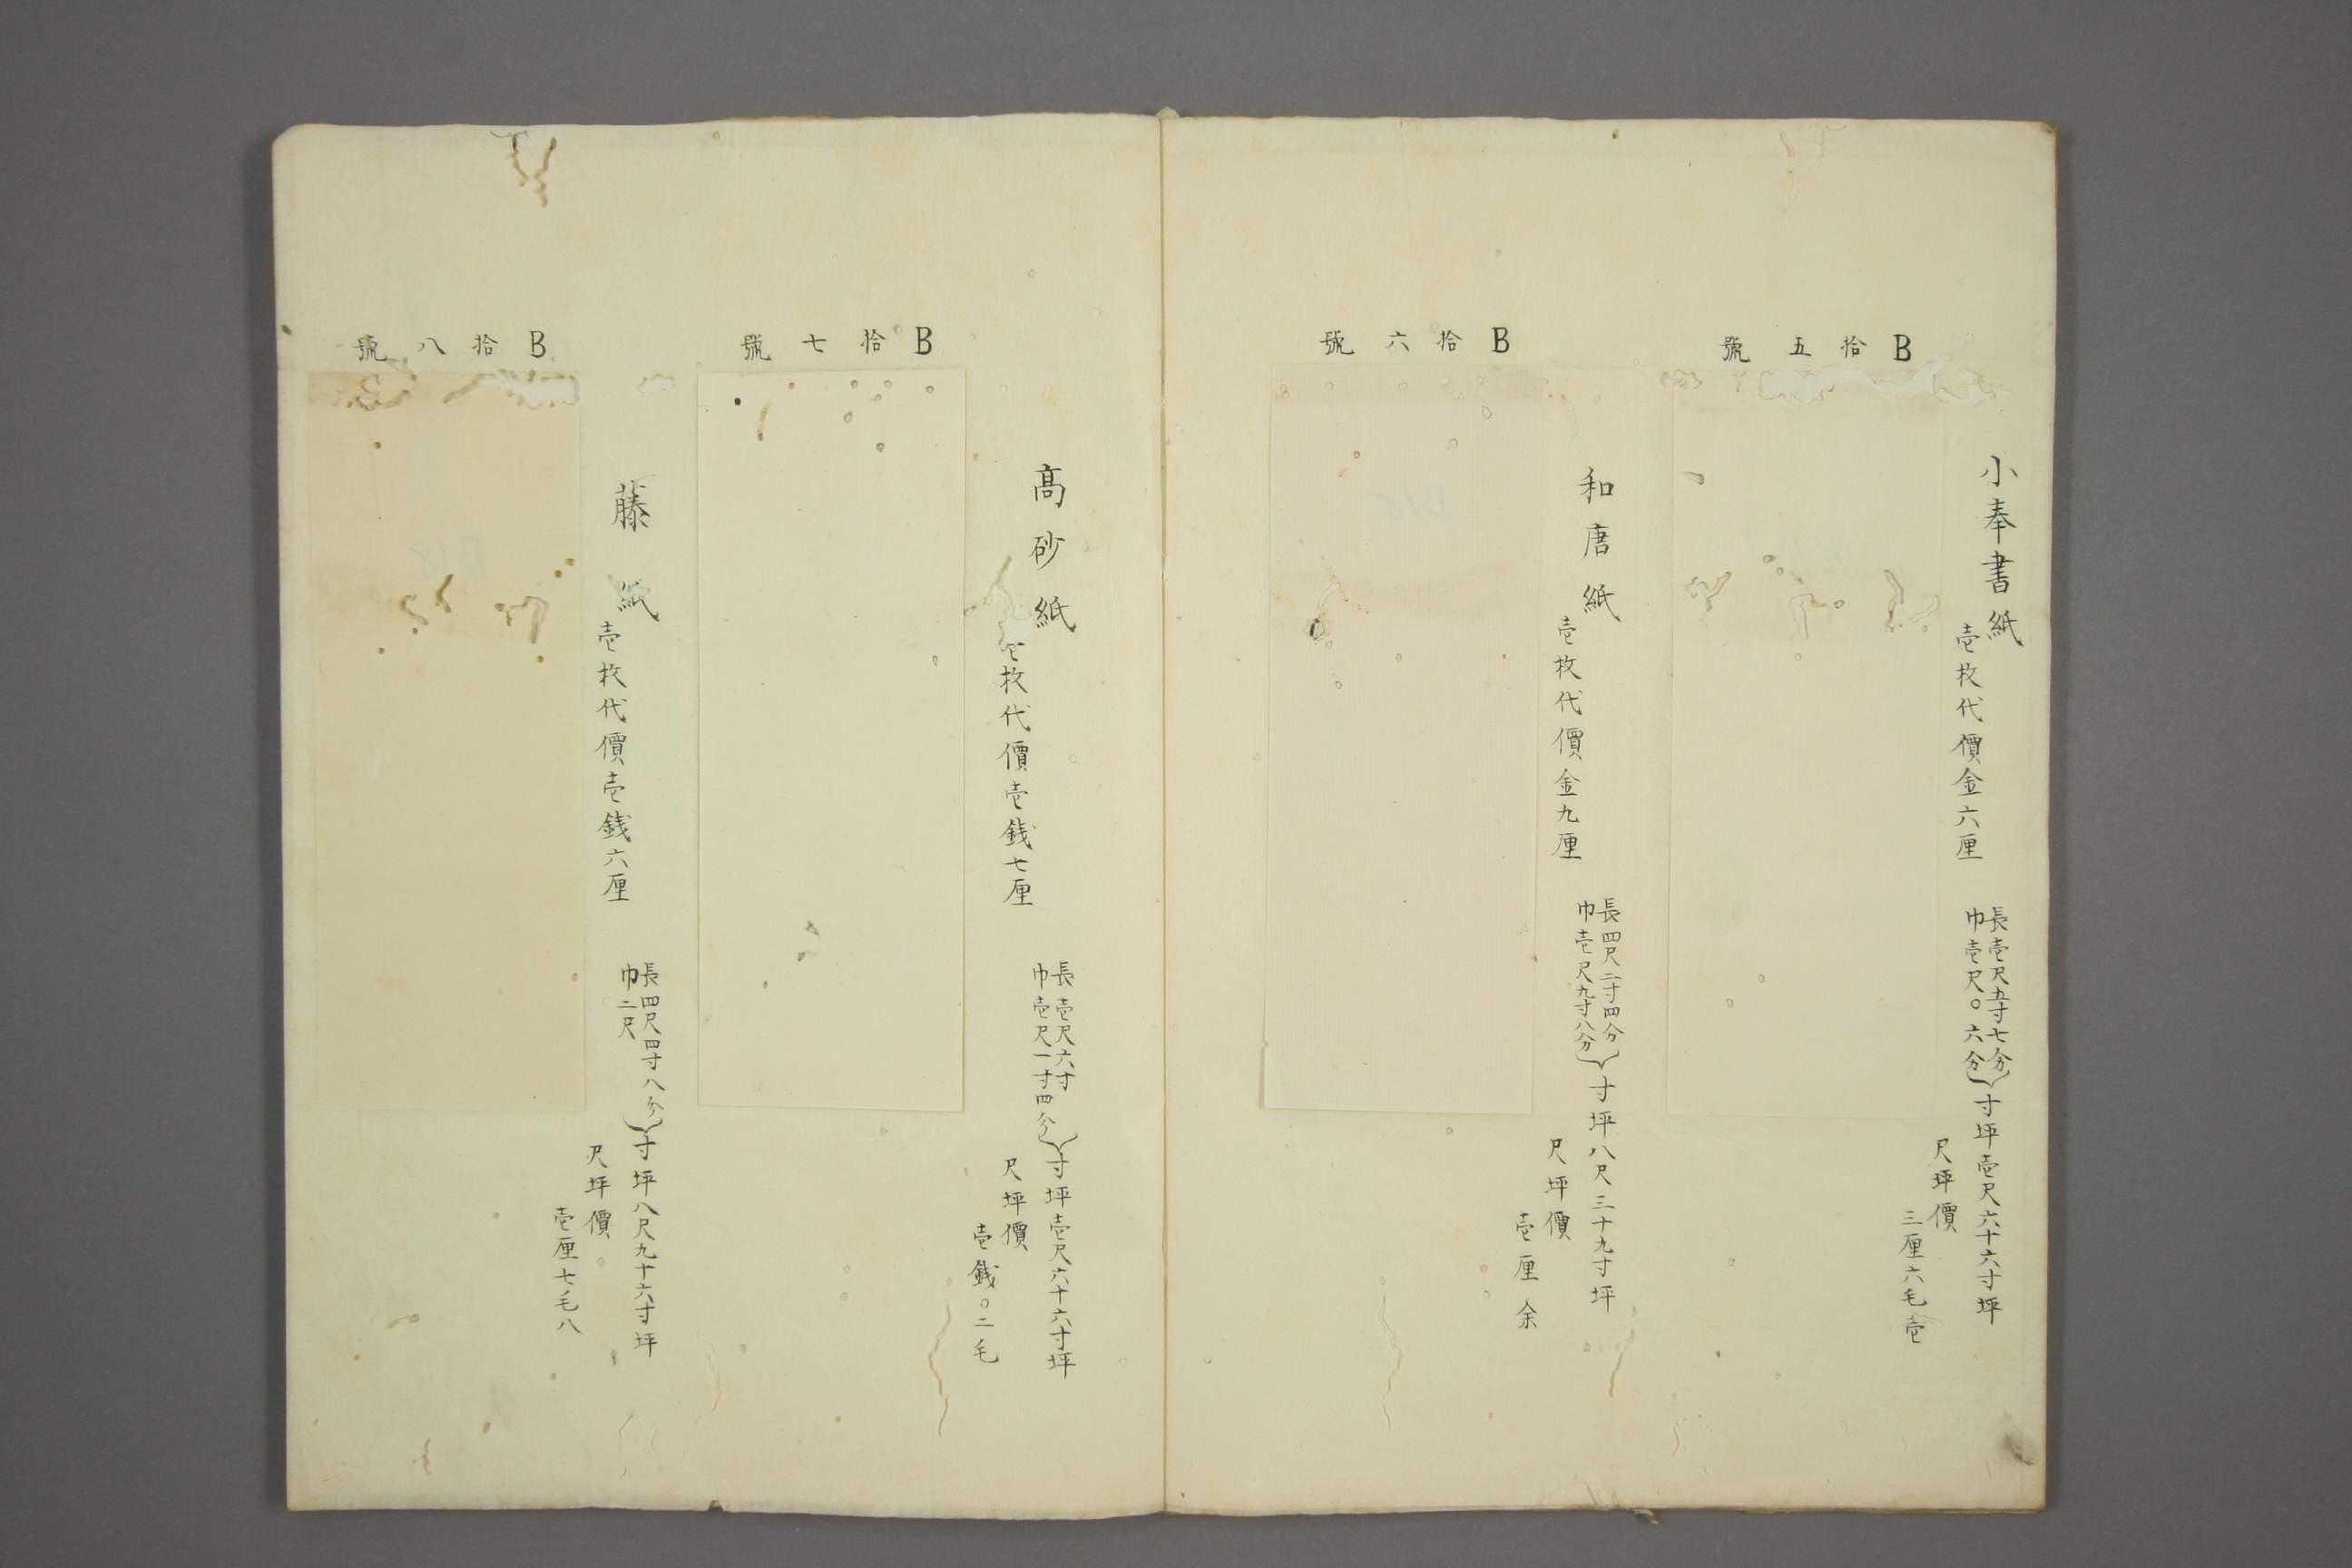 B拾五號
小奉書紙
壱枚代價金六厘
長壱尺五寸七分
巾壱尺〇六分
寸坪壱尺六十六寸坪
尺坪價
三厘六毛壱
B拾六號
和唐紙
壱枚代價金九厘
長四尺二寸四分
巾壱尺九寸八分
寸坪八尺三十九寸坪
尺坪價
壱厘余
B拾七號
髙砂紙
壱枚代價壱銭七厘
長壱尺六寸
巾壱尺一寸四分
寸坪壱尺六十六寸坪
尺坪價
壱銭〇二毛
B拾八號
藤紙
壱枚代價壱銭六厘
長四尺四寸八分
巾二尺
寸坪八尺九十六寸坪
尺坪價
壱厘七毛八